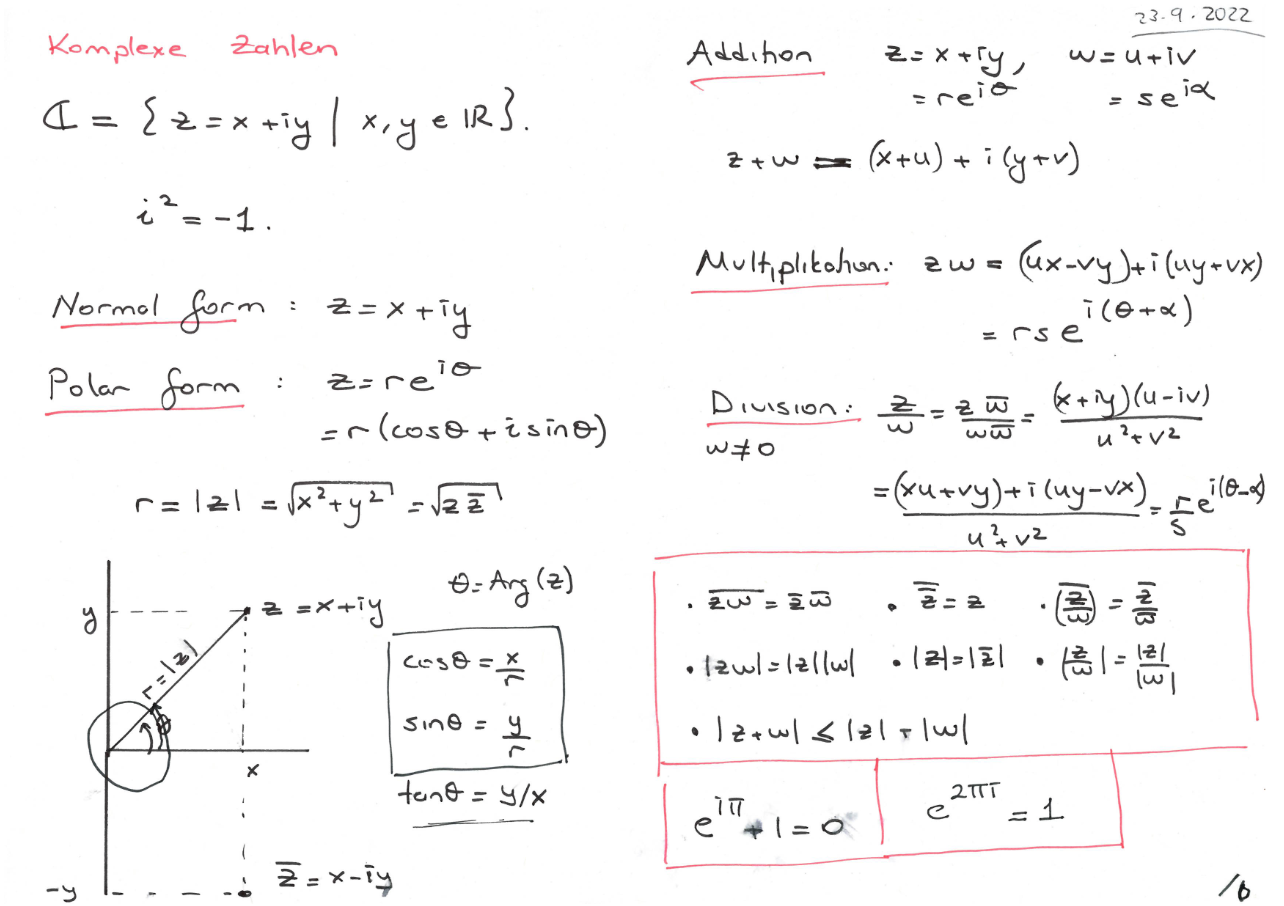 23.9.2022
Komplexe Zahlen
ℂ = { z = x + iy | x, y ∈ ℝ }.
i² = -1.
Normal form : z = x + iy
Polar form : z = re^{iθ}
= r (cosθ + i sinθ)
r = |z| = √(x² + y²) = √(z z̅)
θ = Arg(z)
y
z = x + iy
r = |z|
θ
x
-y
z̅ = x - iy
cosθ = x/r
sinθ = y/r
tanθ = y/x
Addition z = x + iy, w = u + iv
= re^{iθ} = se^{iα}
z + w = (x+u) + i(y+v)
Multiplikation: zw = (ux-vy) + i(uy+vx)
= rs e^{i(θ+α)}
Division: z/w = z w̅ / w w̅ = (x+iy)(u-iv) / u²+v²
w ≠ 0
= (xu+vy) + i(uy-vx) / u²+v² = r/s e^{i(θ-α)}
• \overline{zw} = z̅ w̅ • \overline{\overline{z}} = z • \overline{(z/w)} = z̅/w̅
• |zw| = |z||w| • |z| = |z̅| • |z/w| = |z|/|w|
• |z+w| ≤ |z| + |w|
e^{iπ} + 1 = 0
e^{2πi} = 1